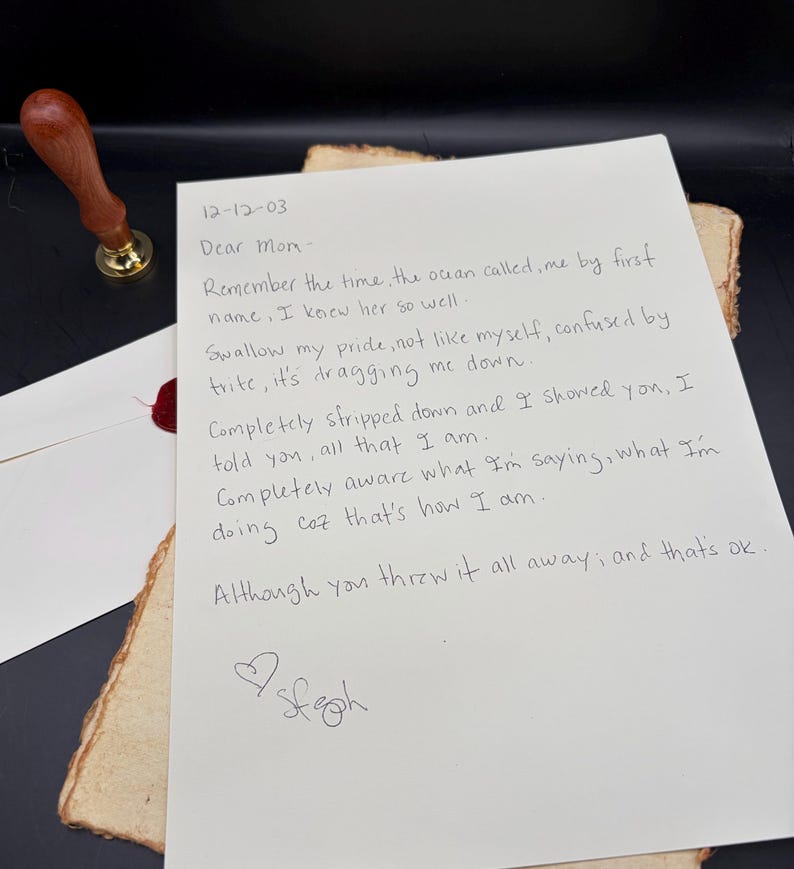 12-12-03
Dear Mom-
Remember the time, the ocean called, me by first
name, I knew her so well.
Swallow my pride, not like myself, confused by
trite, it's dragging me down.
Completely stripped down and I showed you, I
told you, all that I am.
Completely aware what I'm saying, what I'm
doing coz that's how I am.
Although you threw it all away; and that's ok.
Steph